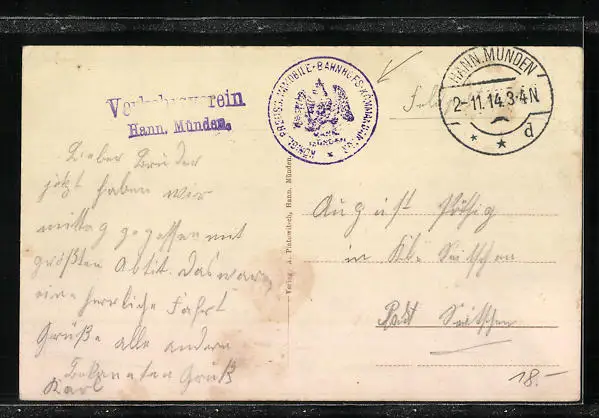 Verkehrsverein
Hann. Münden.
KÖNIGL. PREUSS. IMMOBILE-BAHNHOFS-KOMMANDANTUR
HANN.
MÜNDEN
HANN. MÜNDEN
2-11.14.3-4N
* * d
Lieber Bruder
jetzt haben wir
mittag gegessen mit
größten Abtit. Das war
eine herrliche Fahrt
Grüße alle andern
Bekannten Gruß
Karl
Verlag A. Hann. Münden.
August
in Kl. Seitschen
Post Seitschen
18.-